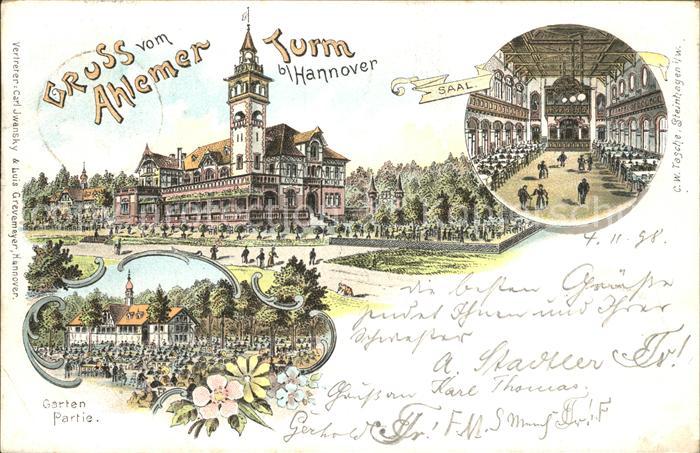 Gruss vom
Ahlemer Turm
b/Hannover
SAAL.
Vertreter: Carl Jwansky & Luis Grevemeyer, Hannover.
C. W. Tasche, Steinhagen i/w.
4. 11. 98.
die besten Grüße
sendet Ihnen und Ihrer
Schwester
A. Stadtler
Gruß an Karl Thomas.
Garten
Partie.
Gerhold